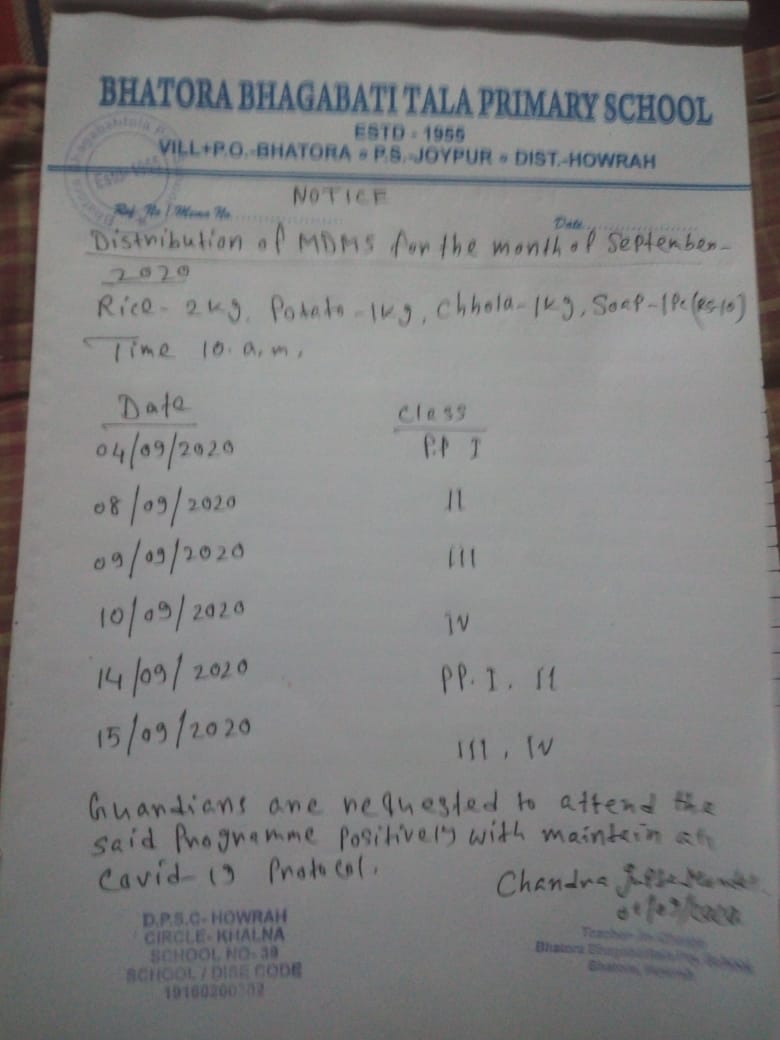 BHATORA BHAGABATI TALA PRIMARY SCHOOL
ESTD - 1955
VILL+P.O.-BHATORA * P.S.-JOYPUR * DIST.-HOWRAH
NOTICE
Ref. No / Memo No.
Date
Distribution of MDMS for the month of September-
2020
Rice- 2kg, Potato-1kg, Chhola-1kg, Soap-1Pc(RS-10)
Time 10. a.m.
Date Class
04/09/2020 P.P I
08/09/2020 II
09/09/2020 III
10/09/2020 IV
14/09/2020 PP. I. II
15/09/2020 III, IV
Guardians are requested to attend the
said Programme Positively with maintain
Covid-19 Protocol.
Chandra
D.P.S.C- HOWRAH
CIRCLE- KHALNA
SCHOOL NO- 39
SCHOOL / DISE CODE
Teacher-In-Charge
Bhatora
Bhatora, Howrah